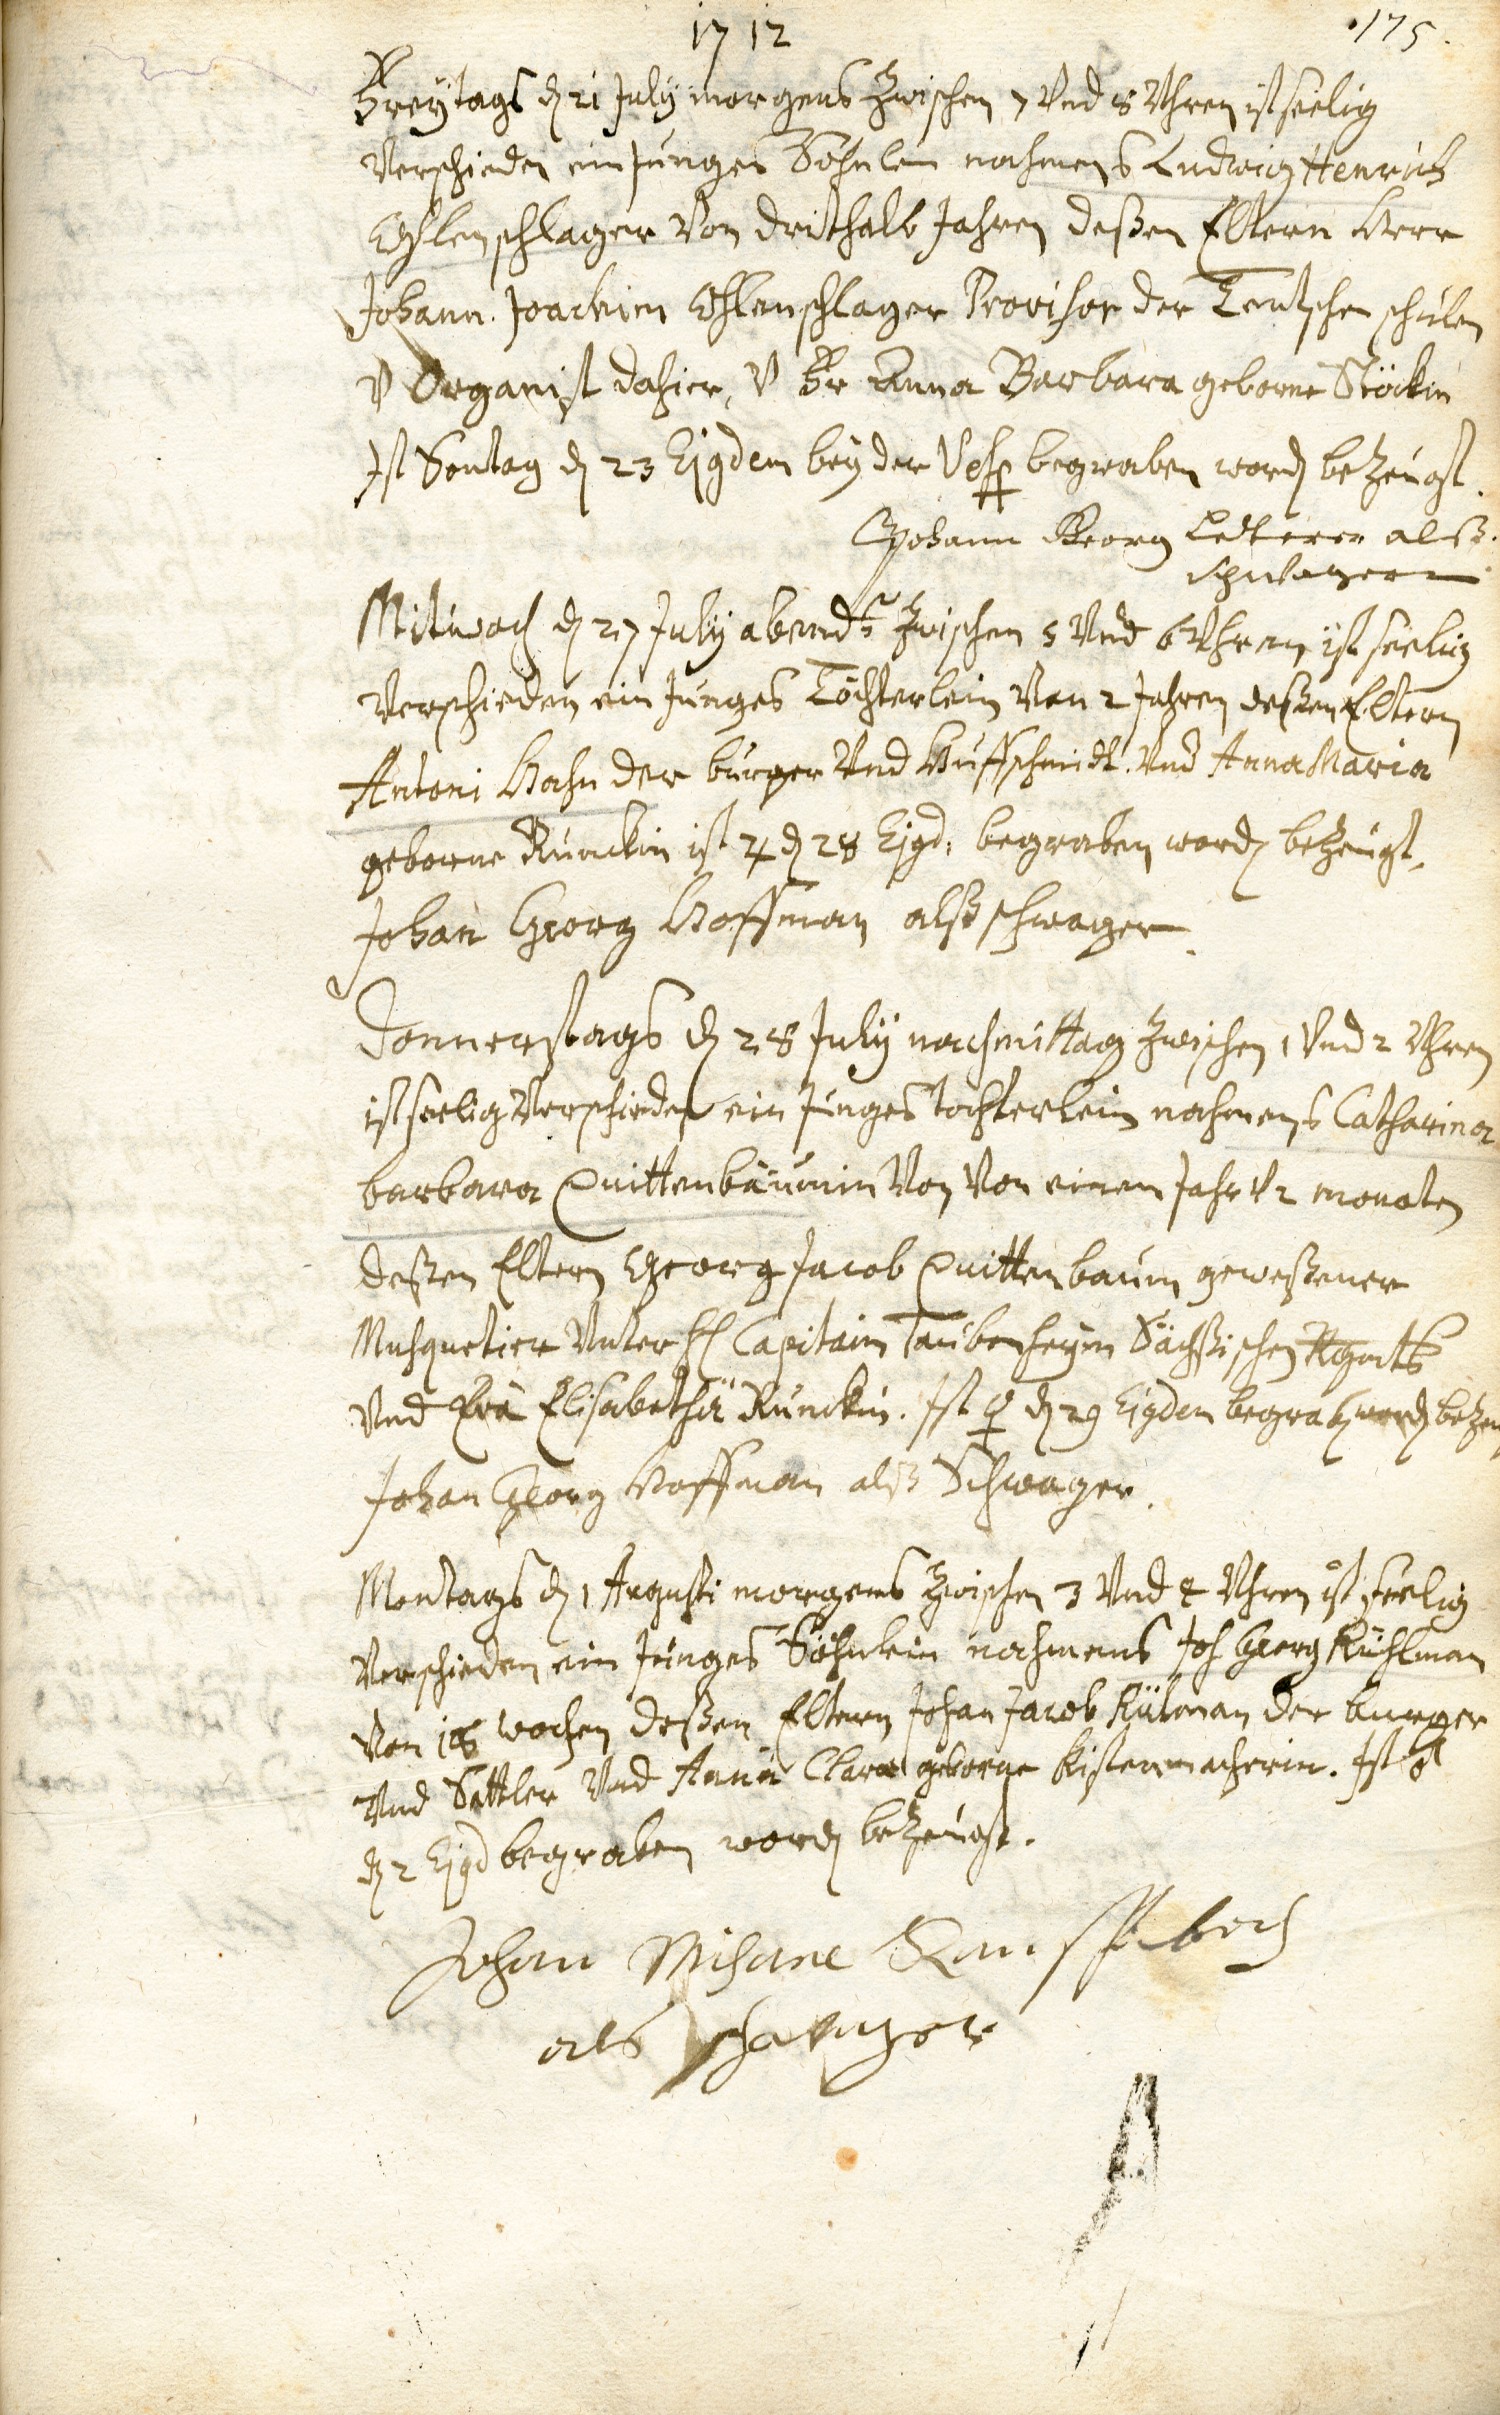 1712
175.
Freytags d 21 July morgens zwischen 7 Vnd 8 Vhren ist seelig
Verschieden ein Junges Söhnlein nahmens Ludwig Henrich
Ohlenschlager Von drithalb Jahren deßen Eltern Herr
Johann Joachim Ohlenschlager Provisor der Teutschen schulen
V Organist dahier, V Fr Anna Barbara geborne Stöckin
Ist Sontag d 23 Ejgdem bey der begraben word bezeugt.
Johann Georg Lederer alß
schwager
Mitwoch d 27 July abends zwischen 5 Vnd 6 Vhren ist seelig
Verschieden ein Junges Töchterlein Von 2 Jahren deßen Eltern
Antoni Hahn der burger Vnd Huffschmidt Vnd Anna Maria
geborne Runckin ist ♃ d 28 Ejgd: begraben word bezeugt.
Johan Georg Hoffman alß schwager.
Donnerstags d 28 July nachmittag zwischen 1 Vnd 2 Vhren
ist seelig Verschieden ein Junges tochterlein nahmens Catharina
barbara Quittenbäumin Von Von einem Jahr V 2 monaten
deßen Eltern Georg Jacob Quittenbaum geweßener
Musquetier Vnter H Capitain Taubenheym Sächßischen Rgmts
Vnd Eva Elisabetha Runckin. Ist ♀ d 29 Ejgdem begrab word bezeu
Johan Georg Hoffman alß Schwager.
Montags d 1 Augusti morgens zwischen 3 Vnd 4 Vhren ist seelig
Verschieden ein Junges Söhnlein nahmens Joh Georg Kühlman
Von 18 wochen deßen Eltern Johan Jacob Külman der burger
Vnd Sattler Vnd Anna Clara geborne Kistenmacherin. Ist ♂
d 2 Ejgd begraben word bezeugt.
Johan
als schwager